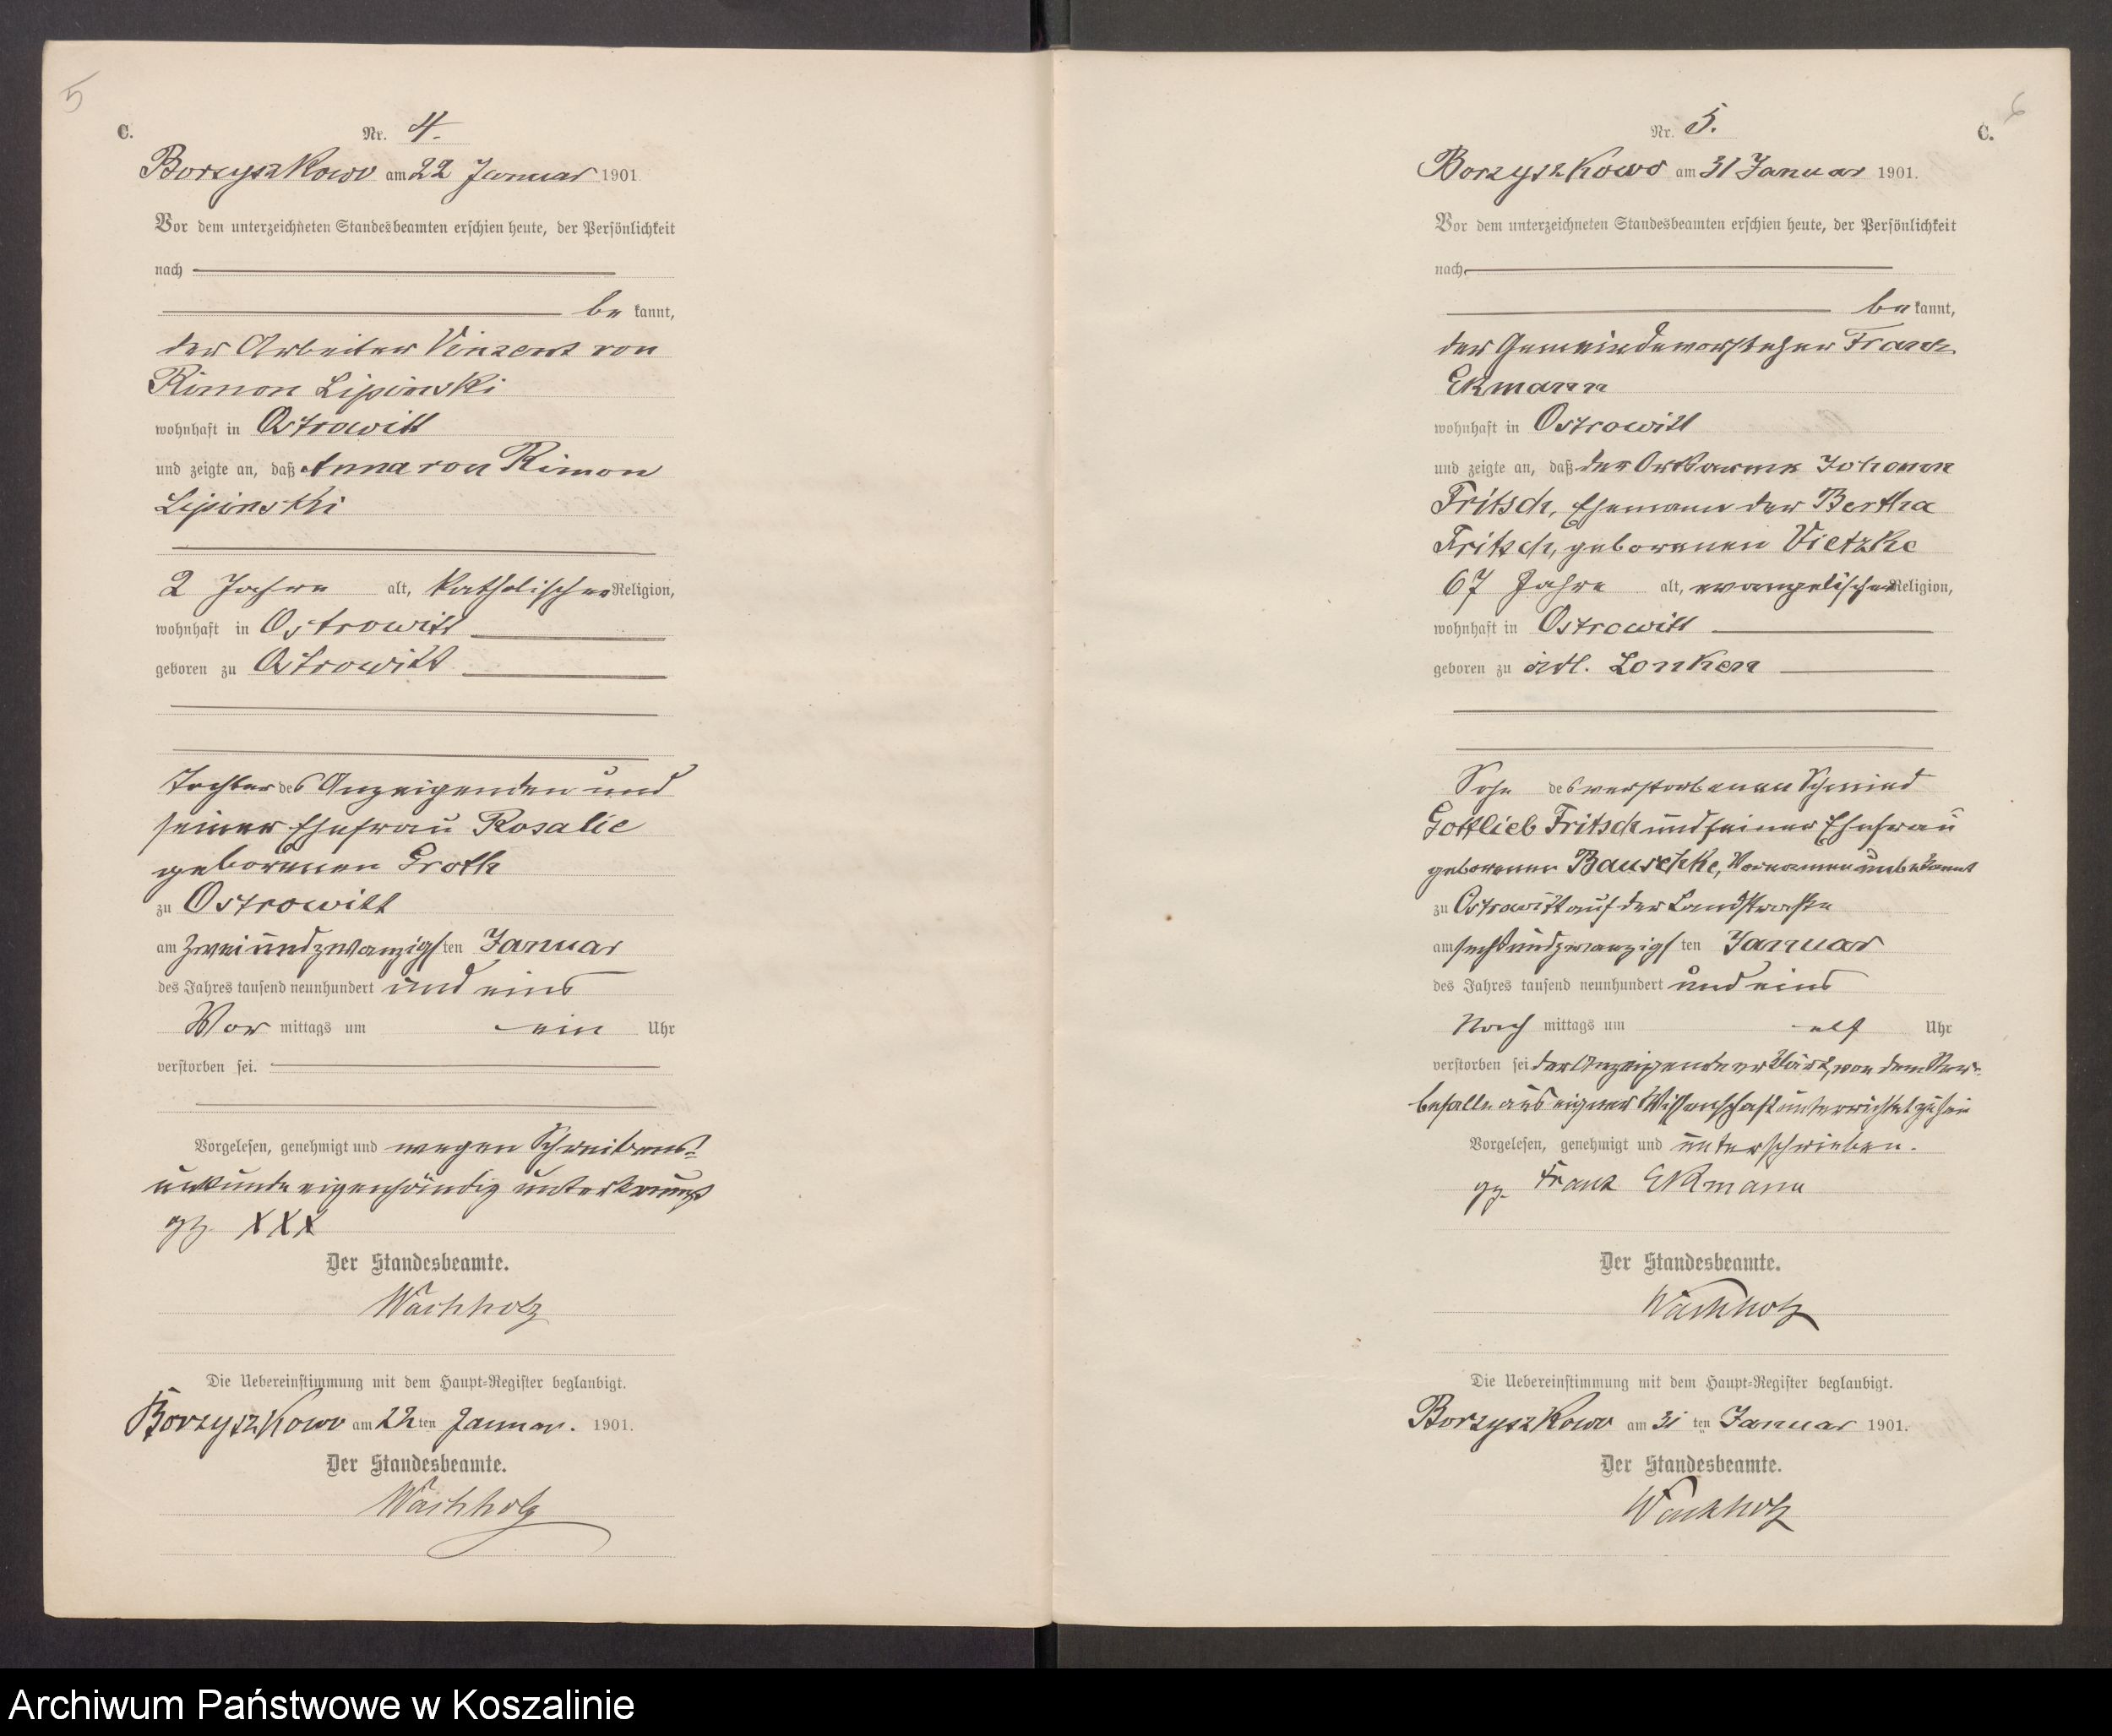 5
C.
Nr. 4.
Borzyszkowo am 22 Januar 1901.
Vor dem unterzeichneten Standesbeamten erschien heute, der Persönlichkeit
nach
be kannt,
der Arbeiter Vinzent von
Rimon Lipinski
wohnhaft in Ostrowitt
und zeigte an, daß Anna von Rimon
Lipinski
2 Jahre alt, katholischer Religion,
wohnhaft in Ostrowitt
geboren zu Ostrowitt
Tochter des Anzeigenden und
seiner Ehefrau Rosalie
geborenen Groth
zu Ostrowitt
am zweiundzwanzigsten Januar
des Jahres tausend neunhundert und eins
Vor mittags um ein Uhr
verstorben sei.
Vorgelesen, genehmigt und wegen Schreibens-
unkunde eigenhändig unterkreuzt
gz. XXX
Der Standesbeamte.
Wachholz
Die Uebereinstimmung mit dem Haupt-Register beglaubigt.
Borzyszkowo am 22ten Januar. 1901.
Der Standesbeamte.
Wachholz
6
Nr. 5.
C.
Borzyszkowo am 31 Januar 1901.
Vor dem unterzeichneten Standesbeamten erschien heute, der Persönlichkeit
nach
be kannt,
der Gemeindevorsteher Franz
Ekmann
wohnhaft in Ostrowitt
und zeigte an, daß der Ortsarme Johann
Fritsch, Ehemann der Bertha
Fritsch, geborenen Vietzke
67 Jahre alt, evangelischer Religion,
wohnhaft in Ostrowitt
geboren zu adl. Lonken
Sohn des verstorbenen Schmied
Gottlieb Fritsch und seiner Ehefrau
geborener Bauschke, Vornamen unbekannt
zu Ostrowitt auf der Landstraße
am sechsundzwanzigsten Januar
des Jahres tausend neunhundert und eins
Nach mittags um elf Uhr
verstorben sei der Anzeigende erklärt, von dem Ster-
befalle aus eigner Wissenschaft unterrichtet zu sein
Vorgelesen, genehmigt und unterschrieben.
gz. Franz Ekmann
Der Standesbeamte.
Wachholz
Die Uebereinstimmung mit dem Haupt-Register beglaubigt.
Borzyszkowo am 31 ten Januar 1901.
Der Standesbeamte.
Wachholz
Archiwum Państwowe w Koszalinie